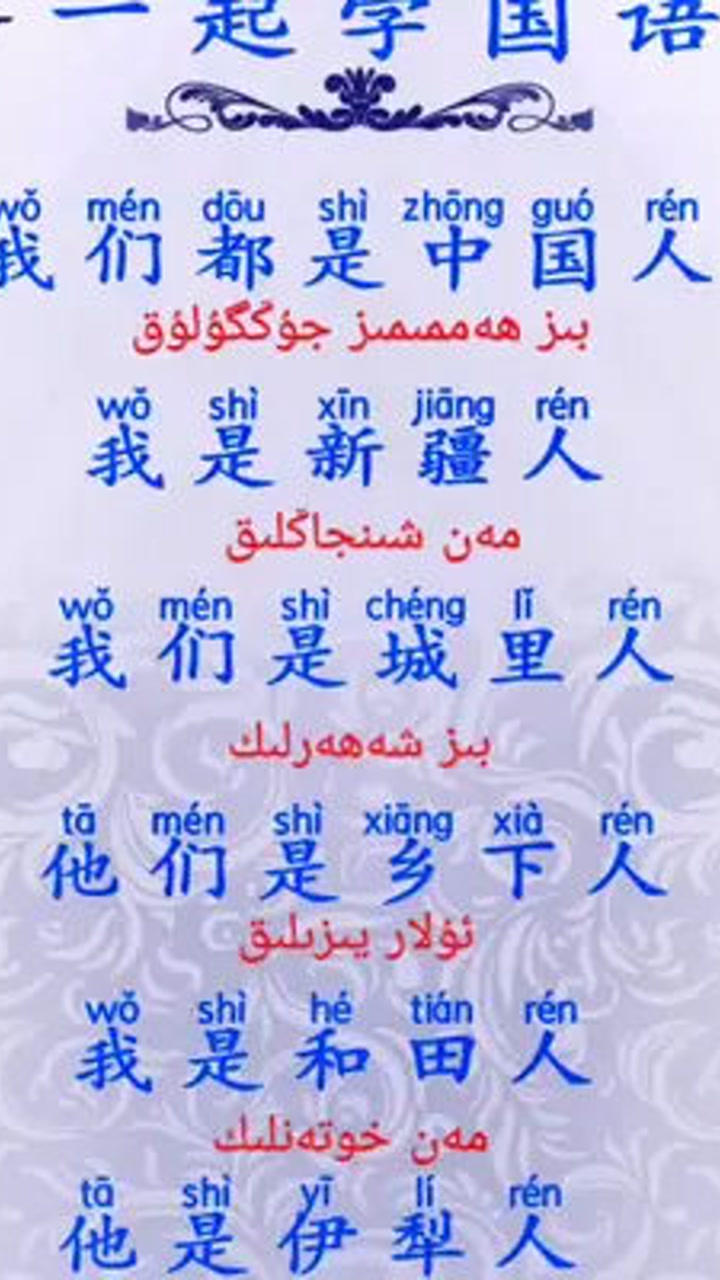 一起学国语
wǒ mén dōu shì zhōng guó rén
我们都是中国人
بىز ھەممىمىز جۇڭگۇلۇق
wǒ shì xīn jiāng rén
我是新疆人
مەن شىنجاڭلىق
wǒ mén shì chéng lǐ rén
我们是城里人
بىز شەھەرلىك
tā mén shì xiāng xià rén
他们是乡下人
ئۇلار يىزىلىق
wǒ shì hé tián rén
我是和田人
مەن خوتەنلىك
tā shì yī lí rén
他是伊犁人